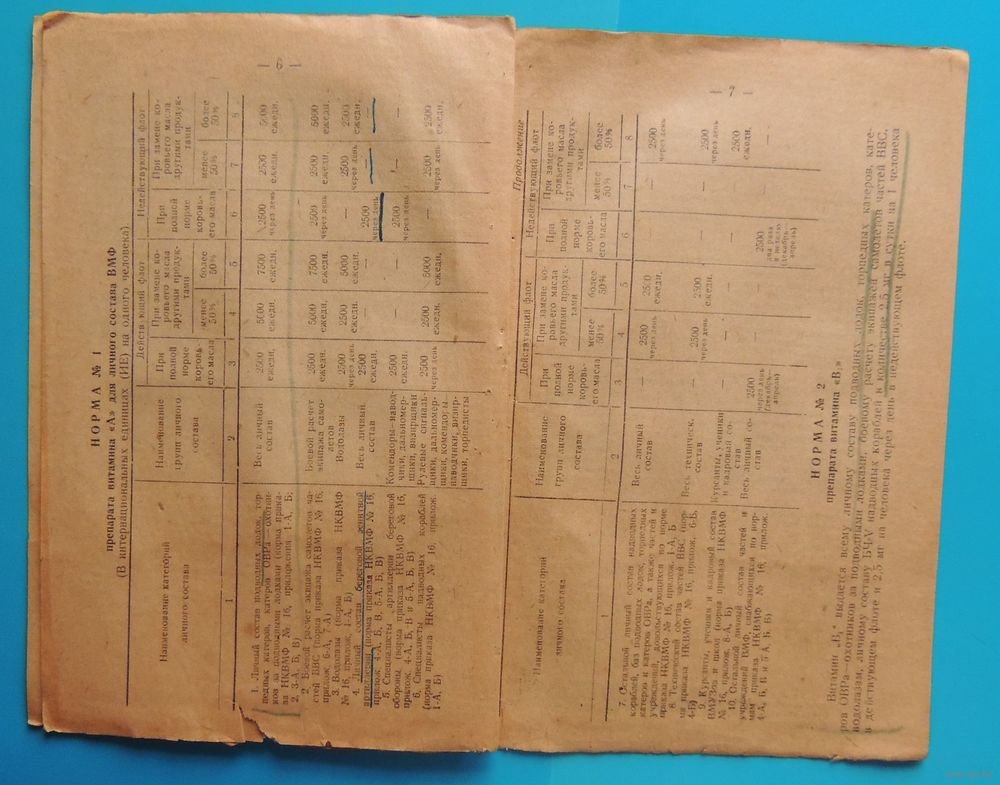 — 6 —
НОРМА № 1
препарата витамина «А» для личного состава ВМФ
(В интернациональных единицах (ИЕ) на одного человека)
Наименование категорий личного состава
Наименование групп личного состава
Действующий флот
Недействующий флот
При полной норме коровьего масла
При замене коровьего масла другими продуктами
менее 50%
более 50%
При полной норме коровьего масла
При замене коровьего масла другими продуктами
менее 50%
более 50%
1 2 3 4 5 6 7 8
1. Личный состав подводных лодок, тор-
педных катеров, катеров ОВРа—охотни-
ков за подводными лодками (норма прика-
за НКВМФ № 16, приложения 1-А, Б;
2, 3-А, Б, В)
Весь личный состав
2500 ежедн.
5000 ежедн.
7500 ежедн.
2500 через день
2500 ежедн.
5000 ежедн.
2. Боевой расчет экипажа самолетов ча-
стей ВВС (норма приказа НКВМФ № 16,
прилож. 6-А, 7-А)
Боевой расчет экипажа самолетов
2500 ежедн.
5000 ежедн.
7500 ежедн.
2500 через день
2500 ежедн.
5000 ежедн.
3. Водолазы (норма приказа НКВМФ
№ 16, прилож. 1-А, Б)
Водолазы
2500 через день
2500 ежедн.
5000 ежедн.
—
2500 через день
2500 ежедн.
4. Личный состав береговой зенитной
артиллерии (норма приказа НКВМФ № 16,
прилож. 4-А, Б, В, 5-А, Б, В)
Весь личный состав
2500 ежедн.
—
—
2500 через день
—
—
5. Специалисты артиллерии береговой
обороны (норма приказа НКВМФ № 16,
прилож. 4-А, Б, В и 5-А, Б, В)
Комендоры—навод-
чики, дальномер-
щики, визирщики
2500 через день
—
—
2500 через день
—
—
6. Специалисты надводных кораблей
(норма приказа НКВМФ № 16, прилож.
1-А, Б)
Рулевые сигналь-
щики, дальномер-
щики, комендоры,
наводчики, визир-
щики, торпедисты
2500 через день
2500 ежедн.
5000 ежедн.
—
2500 через день
2500 ежедн.
— 7 —
Продолжение
Наименование категорий личного состава
Наименование групп личного состава
Действующий флот
Недействующий флот
При полной норме коровьего масла
При замене коровьего масла другими продуктами
менее 50%
более 50%
При полной норме коровьего масла
При замене коровьего масла другими продуктами
менее 50%
более 50%
1 2 3 4 5 6 7 8
7. Остальной личный состав надводных
кораблей, баз подводных лодок, торпедных
катеров и катеров ОВРа, а также частей и
учреждений, довольствующихся по норме
приказа НКВМФ № 16, прилож. 1-А, Б
Весь личный состав
—
2500 через день
2500 ежедн.
—
—
2500 через день
8. Технический состав частей ВВС (нор-
ма приказа НКВМФ № 16, прилож. 6-Б,
4-Б)
Весь техническ. состав
—
2500 через день
2500 ежедн.
—
—
2500 через день
9. Курсанты, ученики и кадровый состав
ВМУЗов и школ (норма приказа НКВМФ
№ 16, прилож. 8-А, Б)
Курсанты, ученики и кадровый состав
—
—
—
—
—
2500 ежедн.
10. Остальной личный состав частей и
учреждений ВМФ, снабжающихся по нор-
мам приказа НКВМФ № 16, прилож.
4-А, Б, В и 5 А, Б, Б)
Весь личный состав
2500 через день (декабрь—апрель)
—
—
2500 два раза в неделю (декабрь—апрель)
—
—
НОРМА № 2
препарата витамина «В₁»
Витамин „В₁“ выдается всему личному составу подводных лодок, торпедных катеров, кате-
ров ОВРа—охотников за подводными лодками, боевому расчету экипажей самолетов частей ВВС,
водолазам, личному составу БЧ-V надводных кораблей в количестве 2,5 мг в сутки на 1 человека
в действующем флоте и 2,5 мг на человека через день в недействующем флоте.